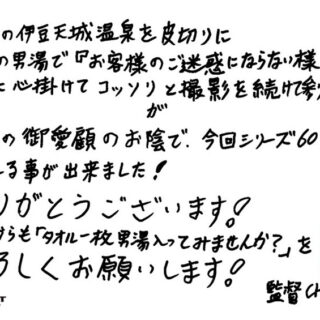 の伊豆天城温泉を皮切りに
の男湯で『お客様のご迷惑にならない様
に心掛けてコッソリと撮影を続けて参
が
の御愛顧のお陰で、今回シリーズ60
る事が出来ました!
りがとうございます!
からも「タオル一枚男湯入ってみませんか?」を
ろしくお願いします!
監督CH